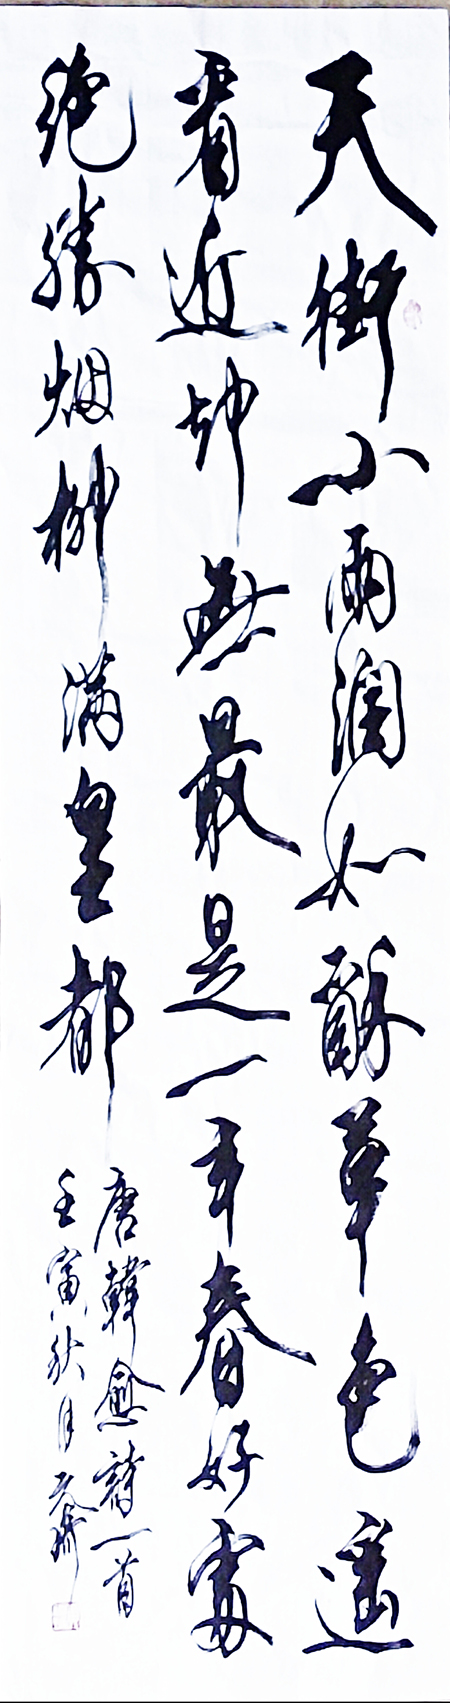 天街小雨润如酥草色遥
看近却無最是一年春好處
绝勝烟柳满皇都
唐韓愈詩一首
壬寅秋月